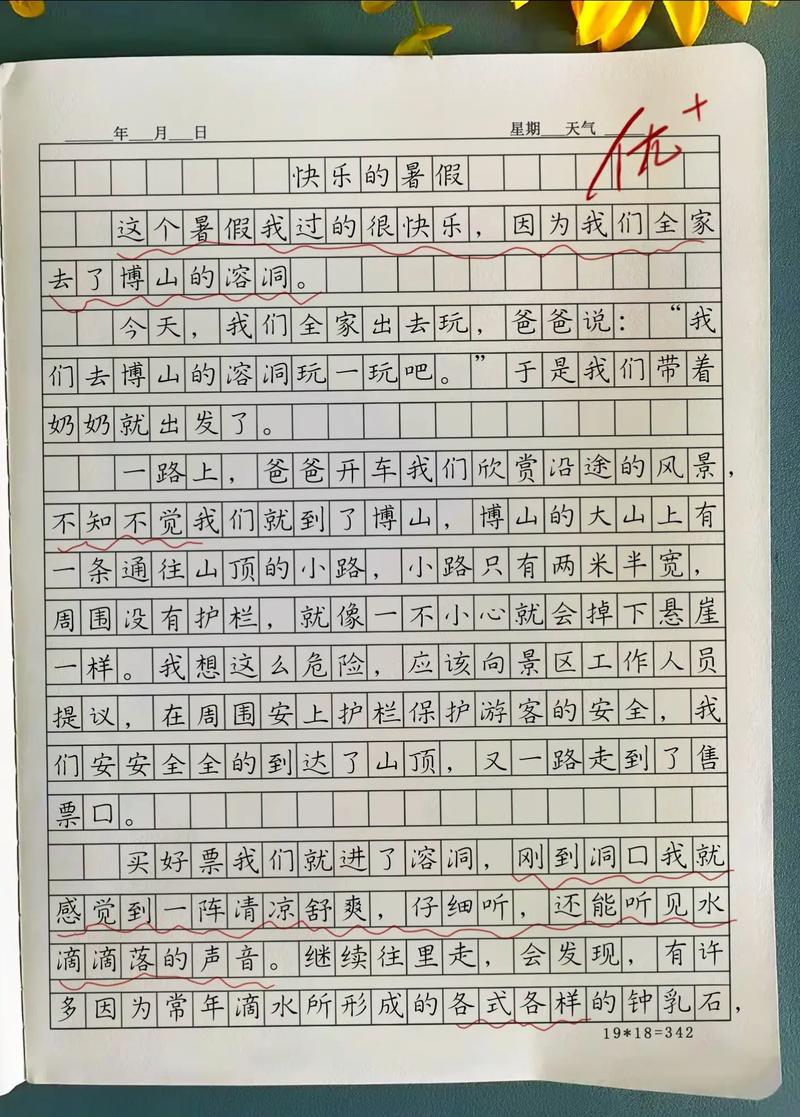 年 月 日 星期 天气
优+
快乐的暑假
这个暑假我过的很快乐，因为我们全家
去了博山的溶洞。
今天，我们全家出去玩，爸爸说：“我
们去博山的溶洞玩一玩吧。”于是我们带着
奶奶就出发了。
一路上，爸爸开车我们欣赏沿途的风景，
不知不觉我们就到了博山，博山的大山上有
一条通往山顶的小路，小路只有两米半宽，
周围没有护栏，就像一不小心就会掉下悬崖
一样。我想这么危险，应该向景区工作人员
提议，在周围安上护栏保护游客的安全，我
们安安全全的到达了山顶，又一路走到了售
票口。
买好票我们就进了溶洞，刚到洞口我就
感觉到一阵清凉舒爽，仔细听，还能听见水
滴滴落的声音。继续往里走，会发现，有许
多因为常年滴水所形成的各式各样的钟乳石，
19*18=342